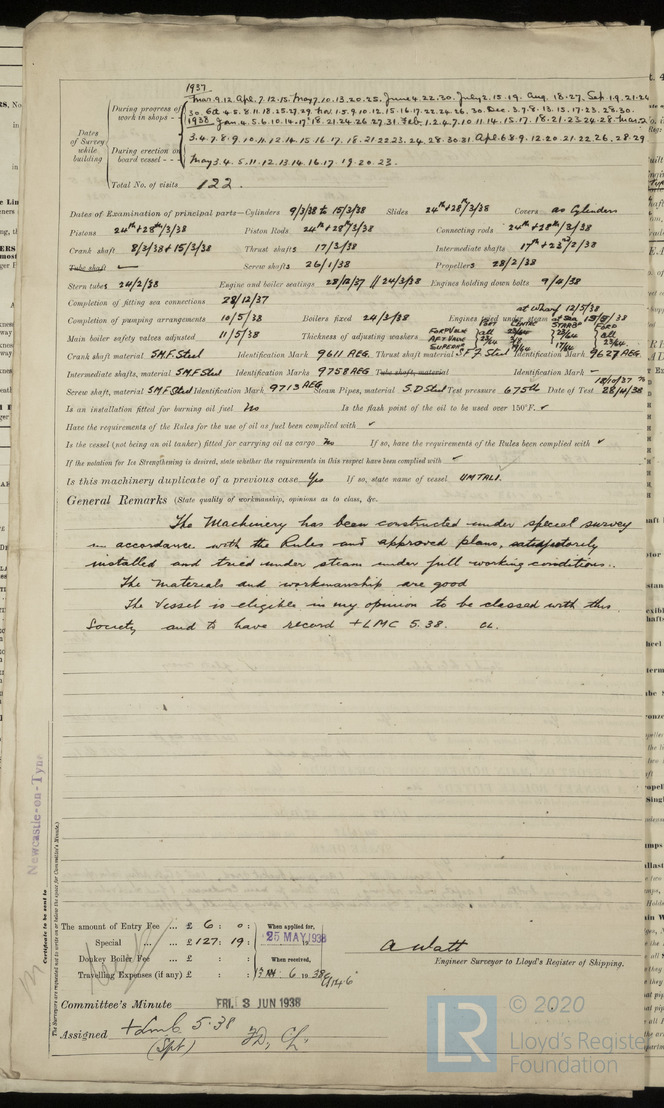 1937
Dates of Survey while building
During progress of work in shops - -
Mar. 9. 12. Apl. 7. 12. 15. May 7. 10. 13. 20. 25. June 4. 22. 30. July 2. 15. 19. Aug. 18. 27. Sep. 1. 9. 21. 24
1938 Jan. 4. 5. 6. 10. 14. 17. 18. 21. 24. 26. 27. 31. Feb. 1. 2. 4. 7. 10. 11. 14. 15. 17. 18. 21. 23. 24. 28. Mar. 2
3. 4. 7. 8. 9. 10. 11. 12. 14. 15. 16. 17. 18. 21. 22. 23. 24. 28. 30. 31. Apl. 6. 8. 9. 12. 20. 21. 22. 26. 28. 29
During erection on board vessel - - -
May 3. 4. 5. 11. 12. 13. 14. 16. 17. 19. 20. 23.
Total No. of visits 122.
Dates of Examination of principal parts—Cylinders 9/3/38 to 15/3/38 Slides 24th + 28th/3/38 Covers as Cylinders
Pistons 24th + 28th/3/38 Piston Rods 24th + 28th/3/38 Connecting rods 24th + 28th/3/38
Crank shaft 8/3/38 + 15/3/38 Thrust shafts 17/3/38 Intermediate shafts 17th + 23rd/2/38
Tube shaft ✓ Screw shafts 26/1/38 Propellers 28/2/38
Stern tubes 24/2/38 Engine and boiler seatings 28/12/37 // 24/3/38 Engines holding down bolts 9/4/38
Completion of fitting sea connections 28/12/37
at Wharf 12/5/38
Completion of pumping arrangements 10/5/38 Boilers fixed 24/3/38 Engines tried under steam at sea
Main boiler safety valves adjusted 11/5/38 Thickness of adjusting washers
Crank shaft material S.M.F. Steel Identification Mark 9611 AEG. Thrust shaft material S.F.I. Steel Identification Mark 9627 AEG.
Intermediate shafts, material S.M.F Steel Identification Marks 9758 AEG Tube shaft, material Identification Mark –
Screw shaft, material S.M.F. Steel Identification Mark 9713 AEG Steam Pipes, material S.D Steel Test pressure 675 lb Date of Test 18/10/37 to 28/4/38
Is an installation fitted for burning oil fuel No Is the flash point of the oil to be used over 150°F. ✓
Have the requirements of the Rules for the use of oil as fuel been complied with ✓
Is the vessel (not being an oil tanker) fitted for carrying oil as cargo No If so, have the requirements of the Rules been complied with ✓
If the notation for Ice Strengthening is desired, state whether the requirements in this respect have been complied with ✓
Is this machinery duplicate of a previous case Yes If so, state name of vessel UMTALI.
General Remarks (State quality of workmanship, opinions as to class, &c.
The Machinery has been constructed under special survey
in accordance with the Rules and approved plans, satisfactorily
installed and tried under steam under full working conditions.
The Materials and workmanship are good
The Vessel is eligible in my opinion to be classed with this
Society and to have record +LMC 5.38. CL.
Newcastle-on-Tyne
Certificate to be sent to
(The Surveyors are requested not to write on or below the space for Committee's Minute.)
The amount of Entry Fee ... £ 6 : 0 : When applied for,
Special ... ... £ 127 : 19 : 25 MAY 1938
Donkey Boiler Fee ... £ : : When received,
Travelling Expenses (if any) £ : : 13 6 19 38
A Watt
Engineer Surveyor to Lloyd's Register of Shipping.
Committee's Minute FRI. 3 JUN 1938
Assigned + LMC 5.38
(Spt) FD, CL.
LR
© 2020
Lloyd's Register
Foundation